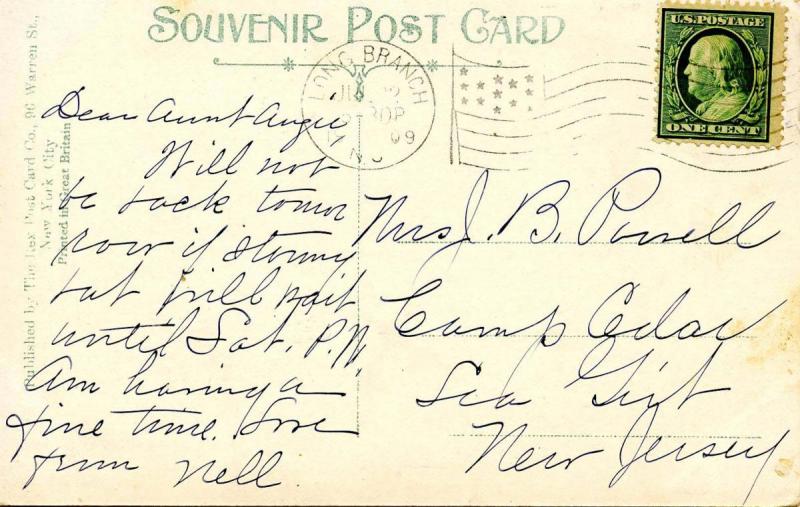 SOUVENIR POST CARD
Published by The Rex Post Card Co., 96 Warren St.,
New York City
Printed in Great Britain
LONG BRANCH
N.J.
U.S. POSTAGE
ONE CENT
Dear Aunt Angie
Will not
be back tomor
row if stormy
but will wait
until Sat. P.M.
Am having a
fine time. Love
from Nell
Mrs J. B. Powell
Camp Cedar
Sea Girt
New Jersey